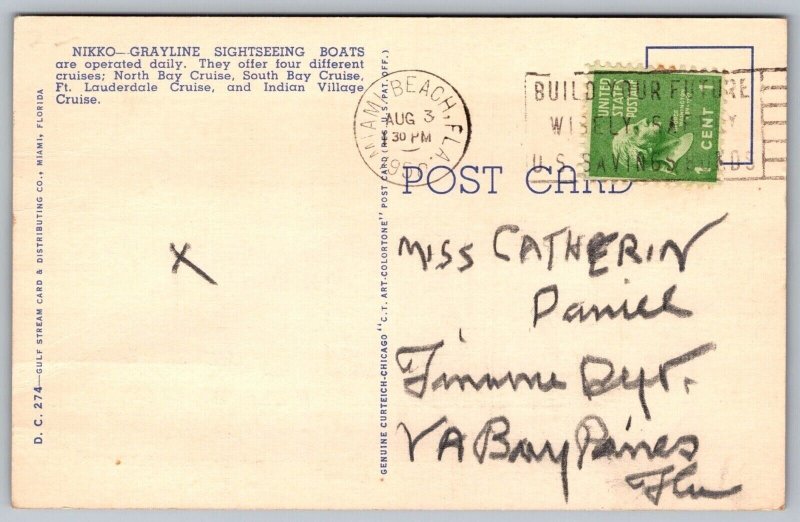 NIKKO—GRAYLINE SIGHTSEEING BOATS
are operated daily. They offer four different
cruises; North Bay Cruise, South Bay Cruise,
Ft. Lauderdale Cruise, and Indian Village
Cruise.
D. C. 274—GULF STREAM CARD & DISTRIBUTING CO., MIAMI, FLORIDA
GENUINE CURTEICH-CHICAGO "C.T. ART-COLORTONE" POST CARD (REG. U.S. PAT. OFF.)
MIAMI BEACH, FLA.
AUG 3
30 PM
BUILD YOUR FUTURE
WISELY, SAFELY
U.S. SAVINGS BONDS
UNITED
STATES
POSTAGE
1 CENT 1
POST CARD
X
MISS CATHERIN
Daniel
Finanne Dept.
VA Bay Pines
Fla